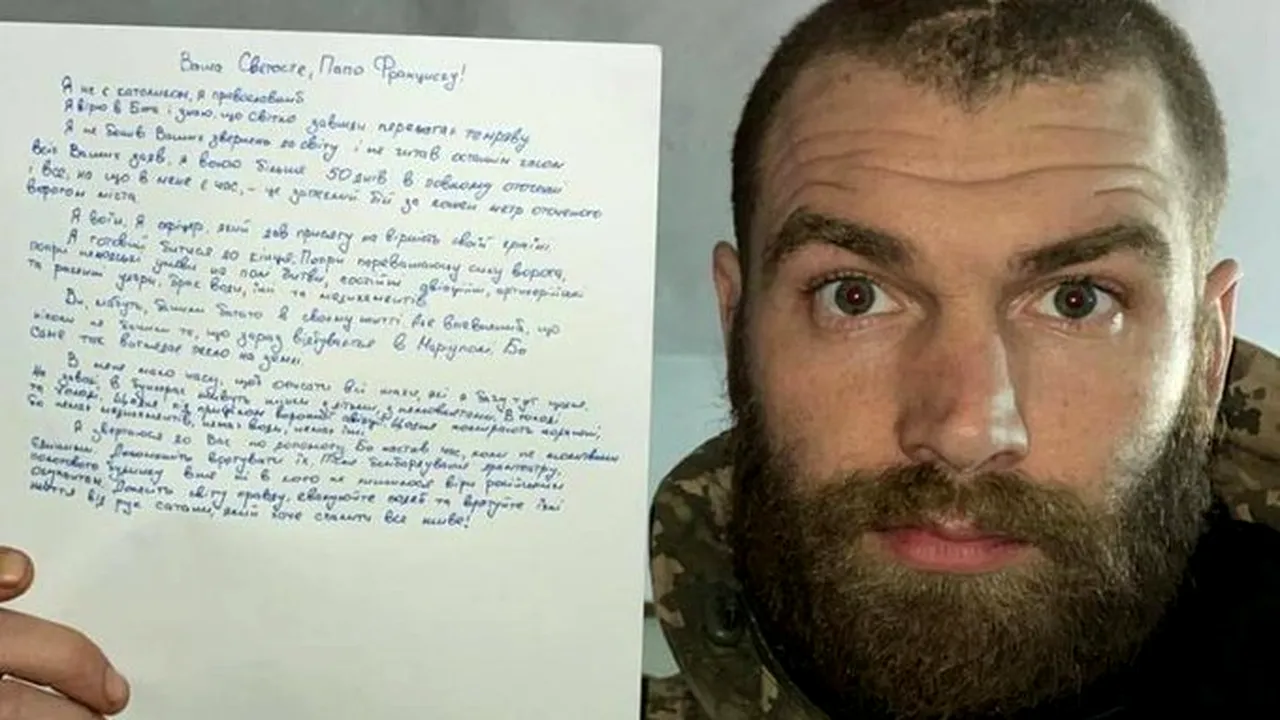 Ваша Святосте, Папо Франциску!
Я не є католиком, я православний
Я вірю в Бога і знаю, що світло завжди перемагає темряву
Я не бачив Ваших звернень до світу і не читав останнім часом
всіх Ваших заяв, я воюю більше 50 днів в повному оточенні
і все, на що в мене є час, – це запеклий бій за кожен метр оточеного
ворогом міста
Я воїн. Я офіцер, який дав присягу на вірність своїй країні.
Я готовий битися до кінця. Попри переважаючу силу ворога,
попри нелюдські умови на полі битви, постійні авіаційні, артилерійські
та ракетні удари, брак води, їжі та медикаментів
Ви, мабуть, бачили багато в своєму житті. Але впевнений, що
ніколи не бачили те, що зараз відбувається в Маріуполі. Бо
саме так виглядає пекло на землі
В мене мало часу, щоб описати всі жахи, які я бачу тут щодня.
На заводі в бункерах живуть жінки з дітьми, з немовлятами. В голоді
та холоді. Щодня під прицілом ворожої авіації. Щодня помирають поранені,
бо немає медикаментів, немає води, немає їжі
Я звертаюся до Вас по допомогу. Бо настав час, коли не молитвами
єдиними. Допоможіть врятувати їх. Після бомбардування драмтеатру,
пологового будинку вже ні в кого не лишилося віри російським
окупантам. Донесіть світу правду, евакуюйте людей та врятуйте їхні
життя від рук сатани, який хоче спалити все живе!